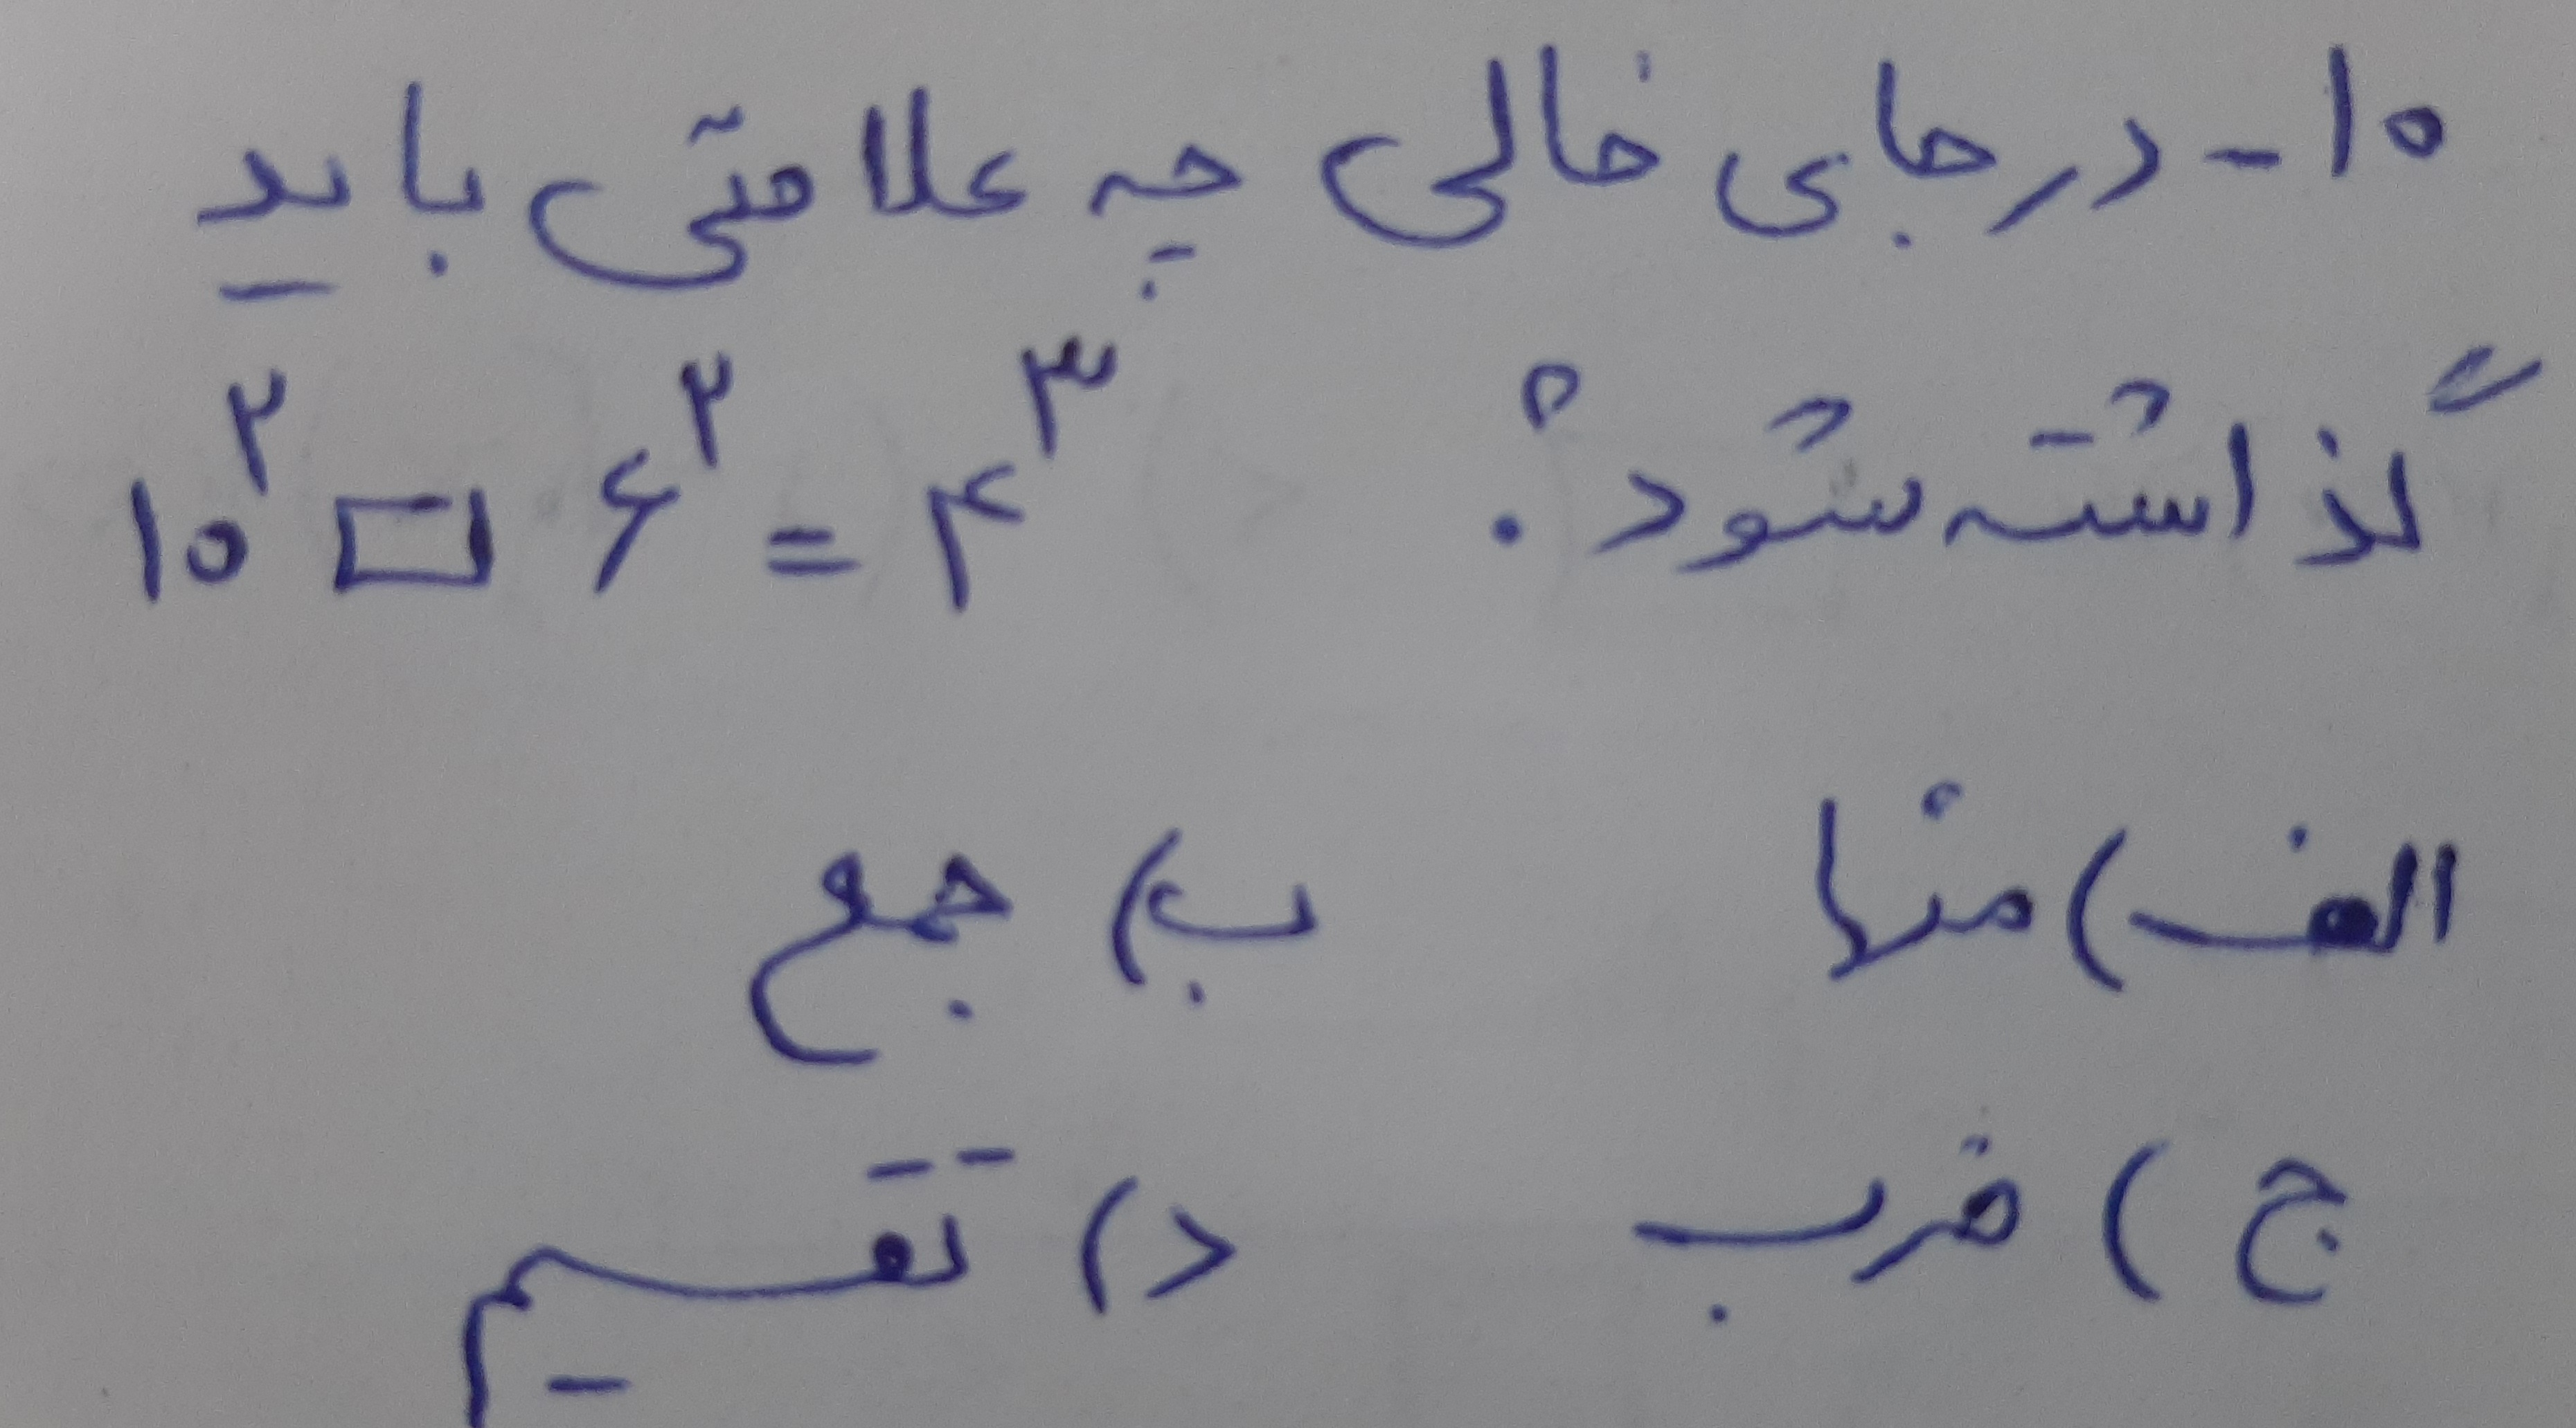 ۱۰- در جای خالی چه علامتی باید
گذاشته شود؟ ۱۰^۲ □ ۶^۲ = ۴^۳
الف) منها ب) جمع
ج) ضرب د) تقسیم